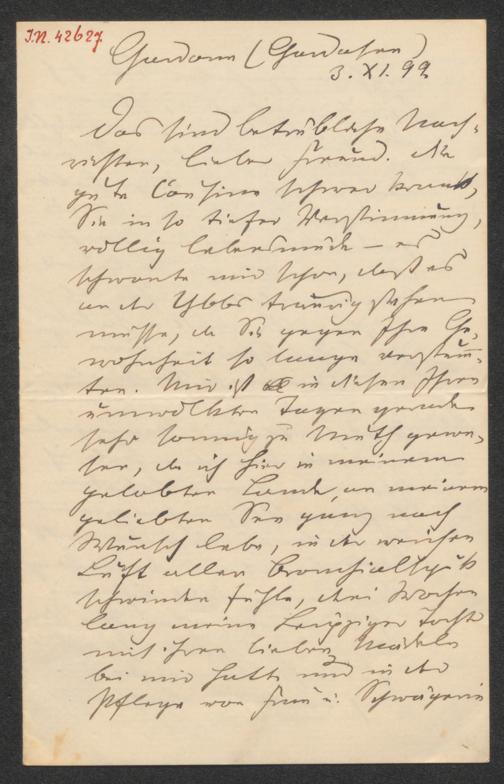 I.N. 42627
Gardone (Gardasee)
3. XI. 99.
Das sind betrübliche Nach-
richten, lieber Freund. Die
gute Cousine schwer krank,
Sie in so tiefer Verstimmung,
völlig lebensmüde – es
schwante mir schon, daß es
an der Ybbs traurig stehen
müsse, da Sie gegen Ihre Ge-
wohnheit so lange verstumm-
ten. Mir ist in diesen Ihren
umwölkten Tagen gerade
sehr sonnig zu Muth gewe-
sen, da ich hier in meinem
gelobten Lande, an meinem
geliebten See ganz nach
Wunsch lebe, in der weichen
Luft allen Bronchialspuk
schwinden fühle, drei Wochen
lang meine Leipziger Tochter
mit ihren lieben Mädeln
bei mir hatte und in der
Pflege von Frau u. Schwägerin